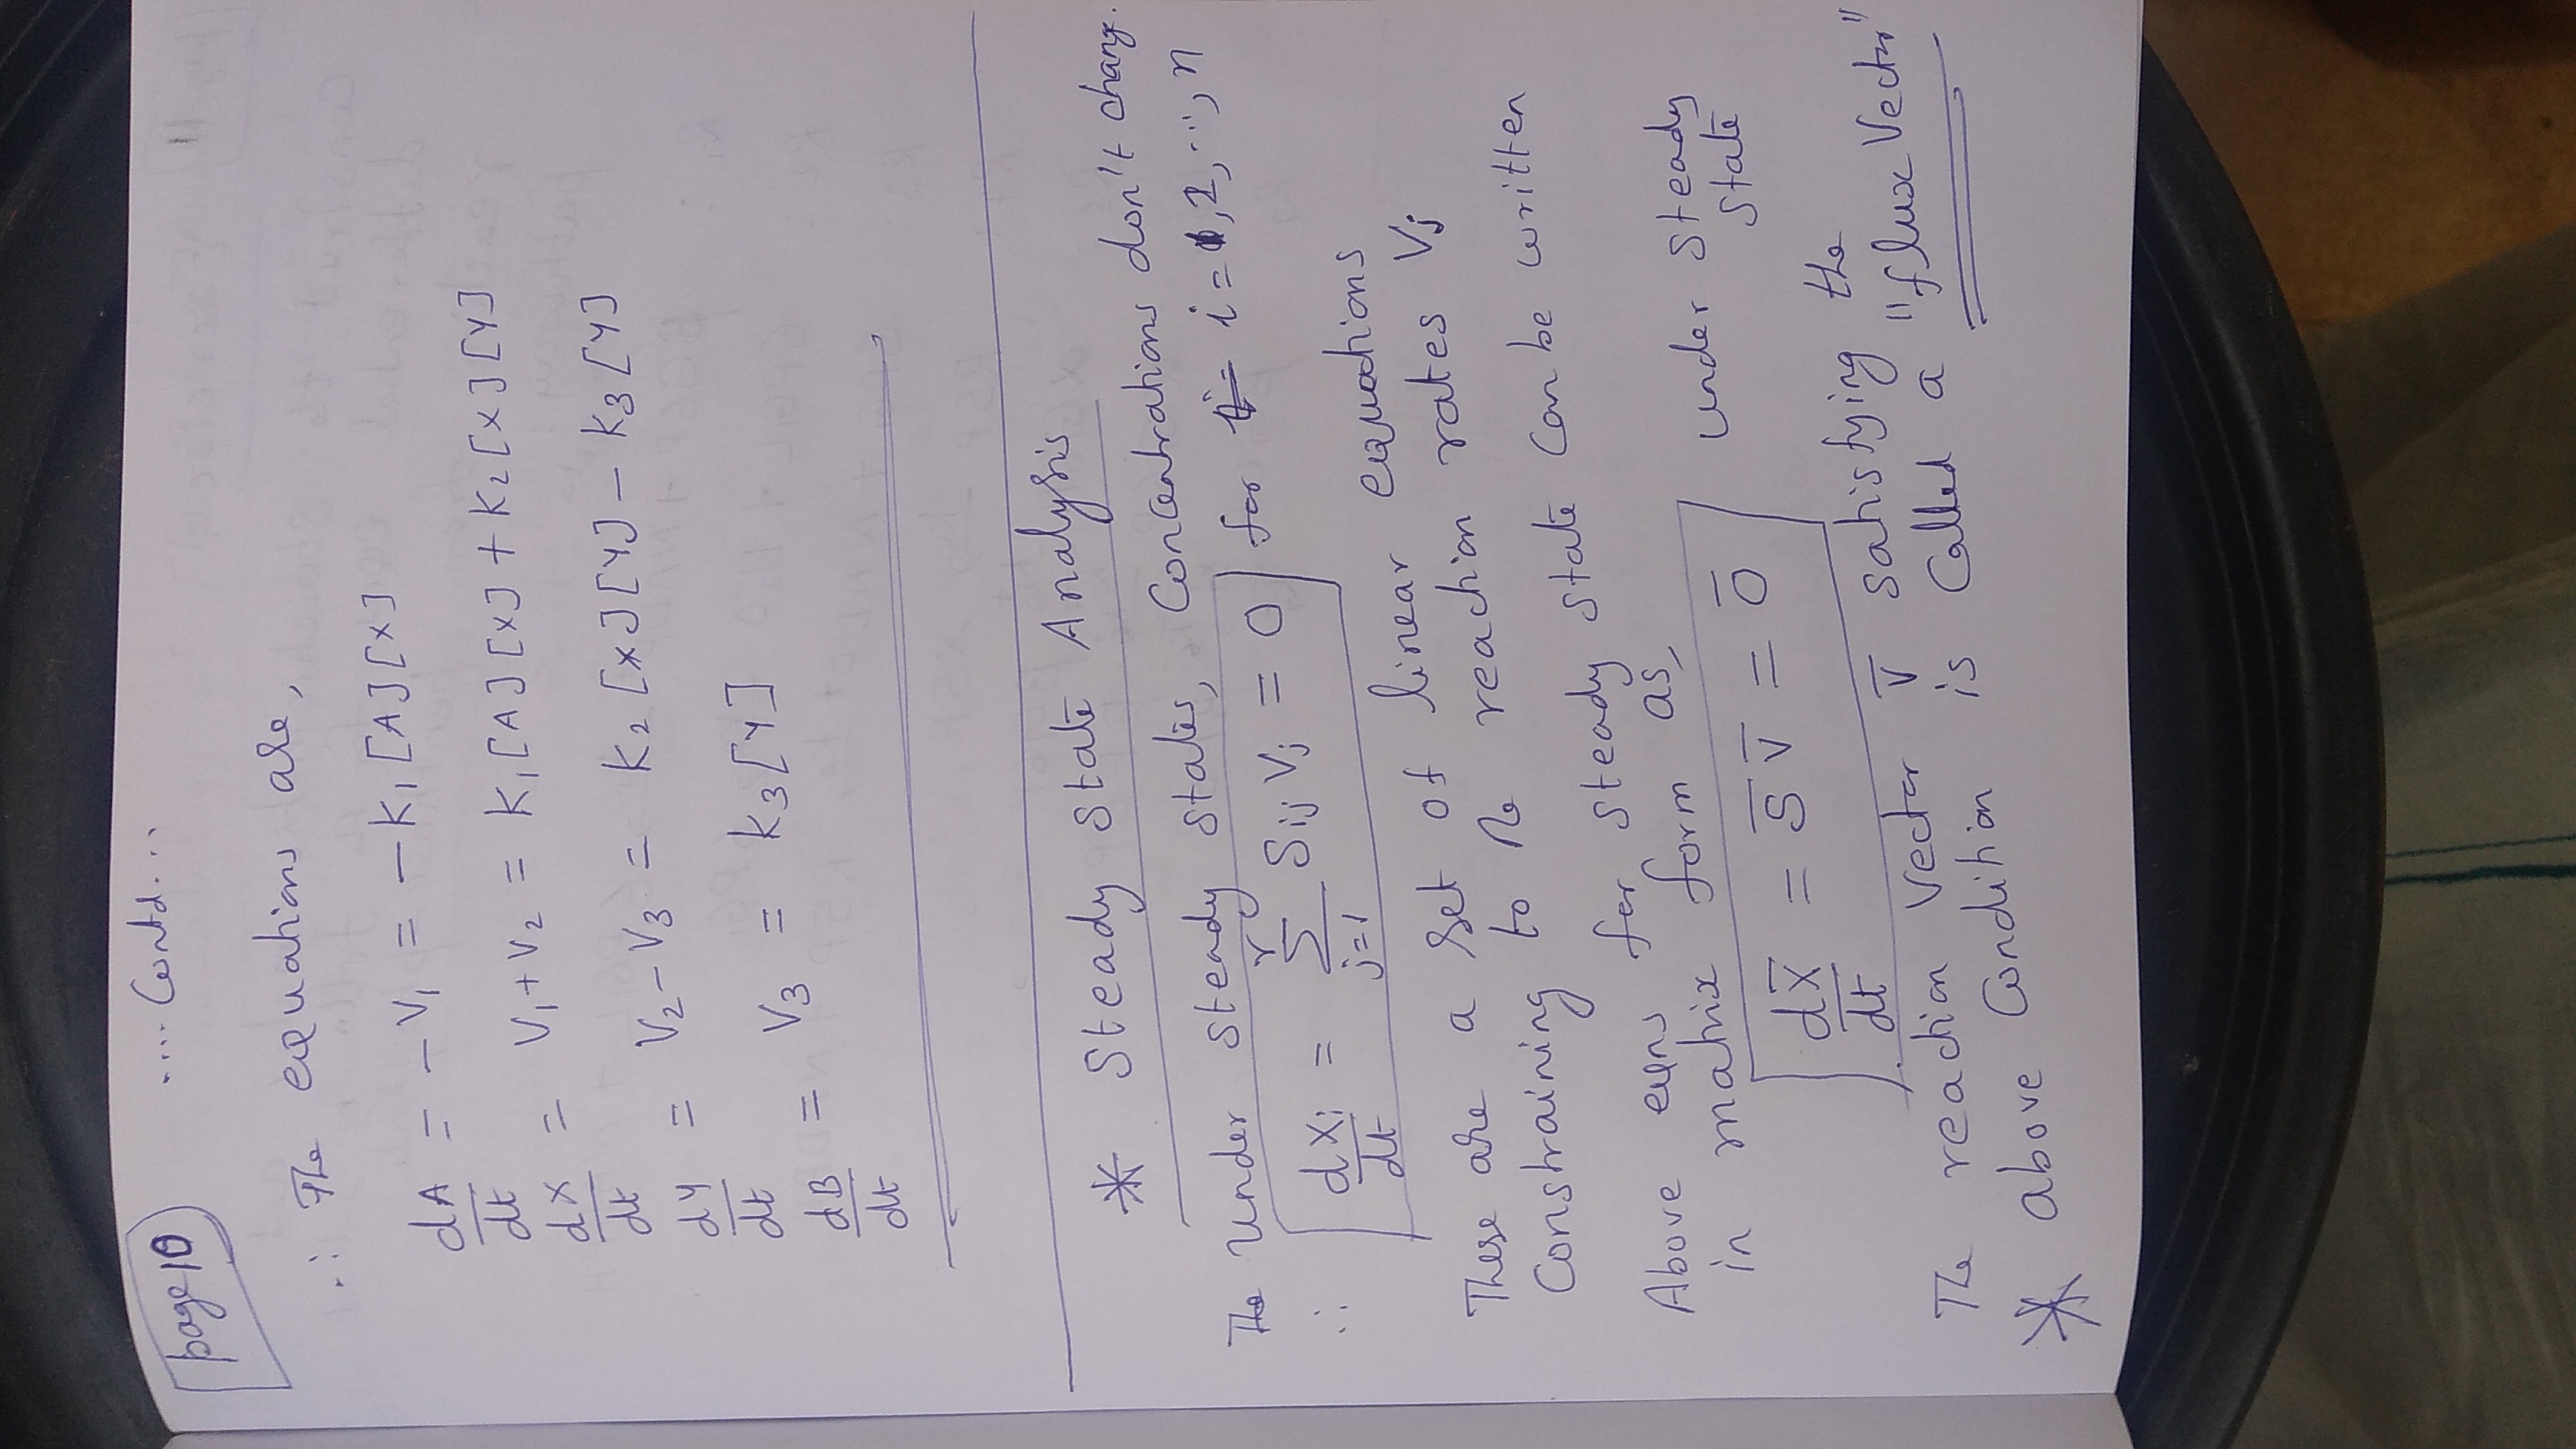 page 10
.... Contd...
∴ The equations are,
dA/dt = -V₁ = -K₁[A][X]
dX/dt = V₁+V₂ = K₁[A][X] + K₂[X][Y]
dY/dt = V₂-V₃ = K₂[X][Y] - K₃[Y]
dB/dt = V₃ = K₃[Y]
* Steady State Analysis
The Under steady states, Concentrations don't change.
∴ dXᵢ/dt = Σ_{j=1}^{r} Sᵢⱼ Vⱼ = 0 for i = 1, 2, ..., n
These are a set of linear equations
Constraining to the reaction rates Vⱼ
Above eqns for steady state can be written
in matrix form as,
dX̄/dt = S̄ V̄ = 0̄ under steady
state
The reaction Vector V̄ satisfying the
* above Condition is called a "flux Vector"